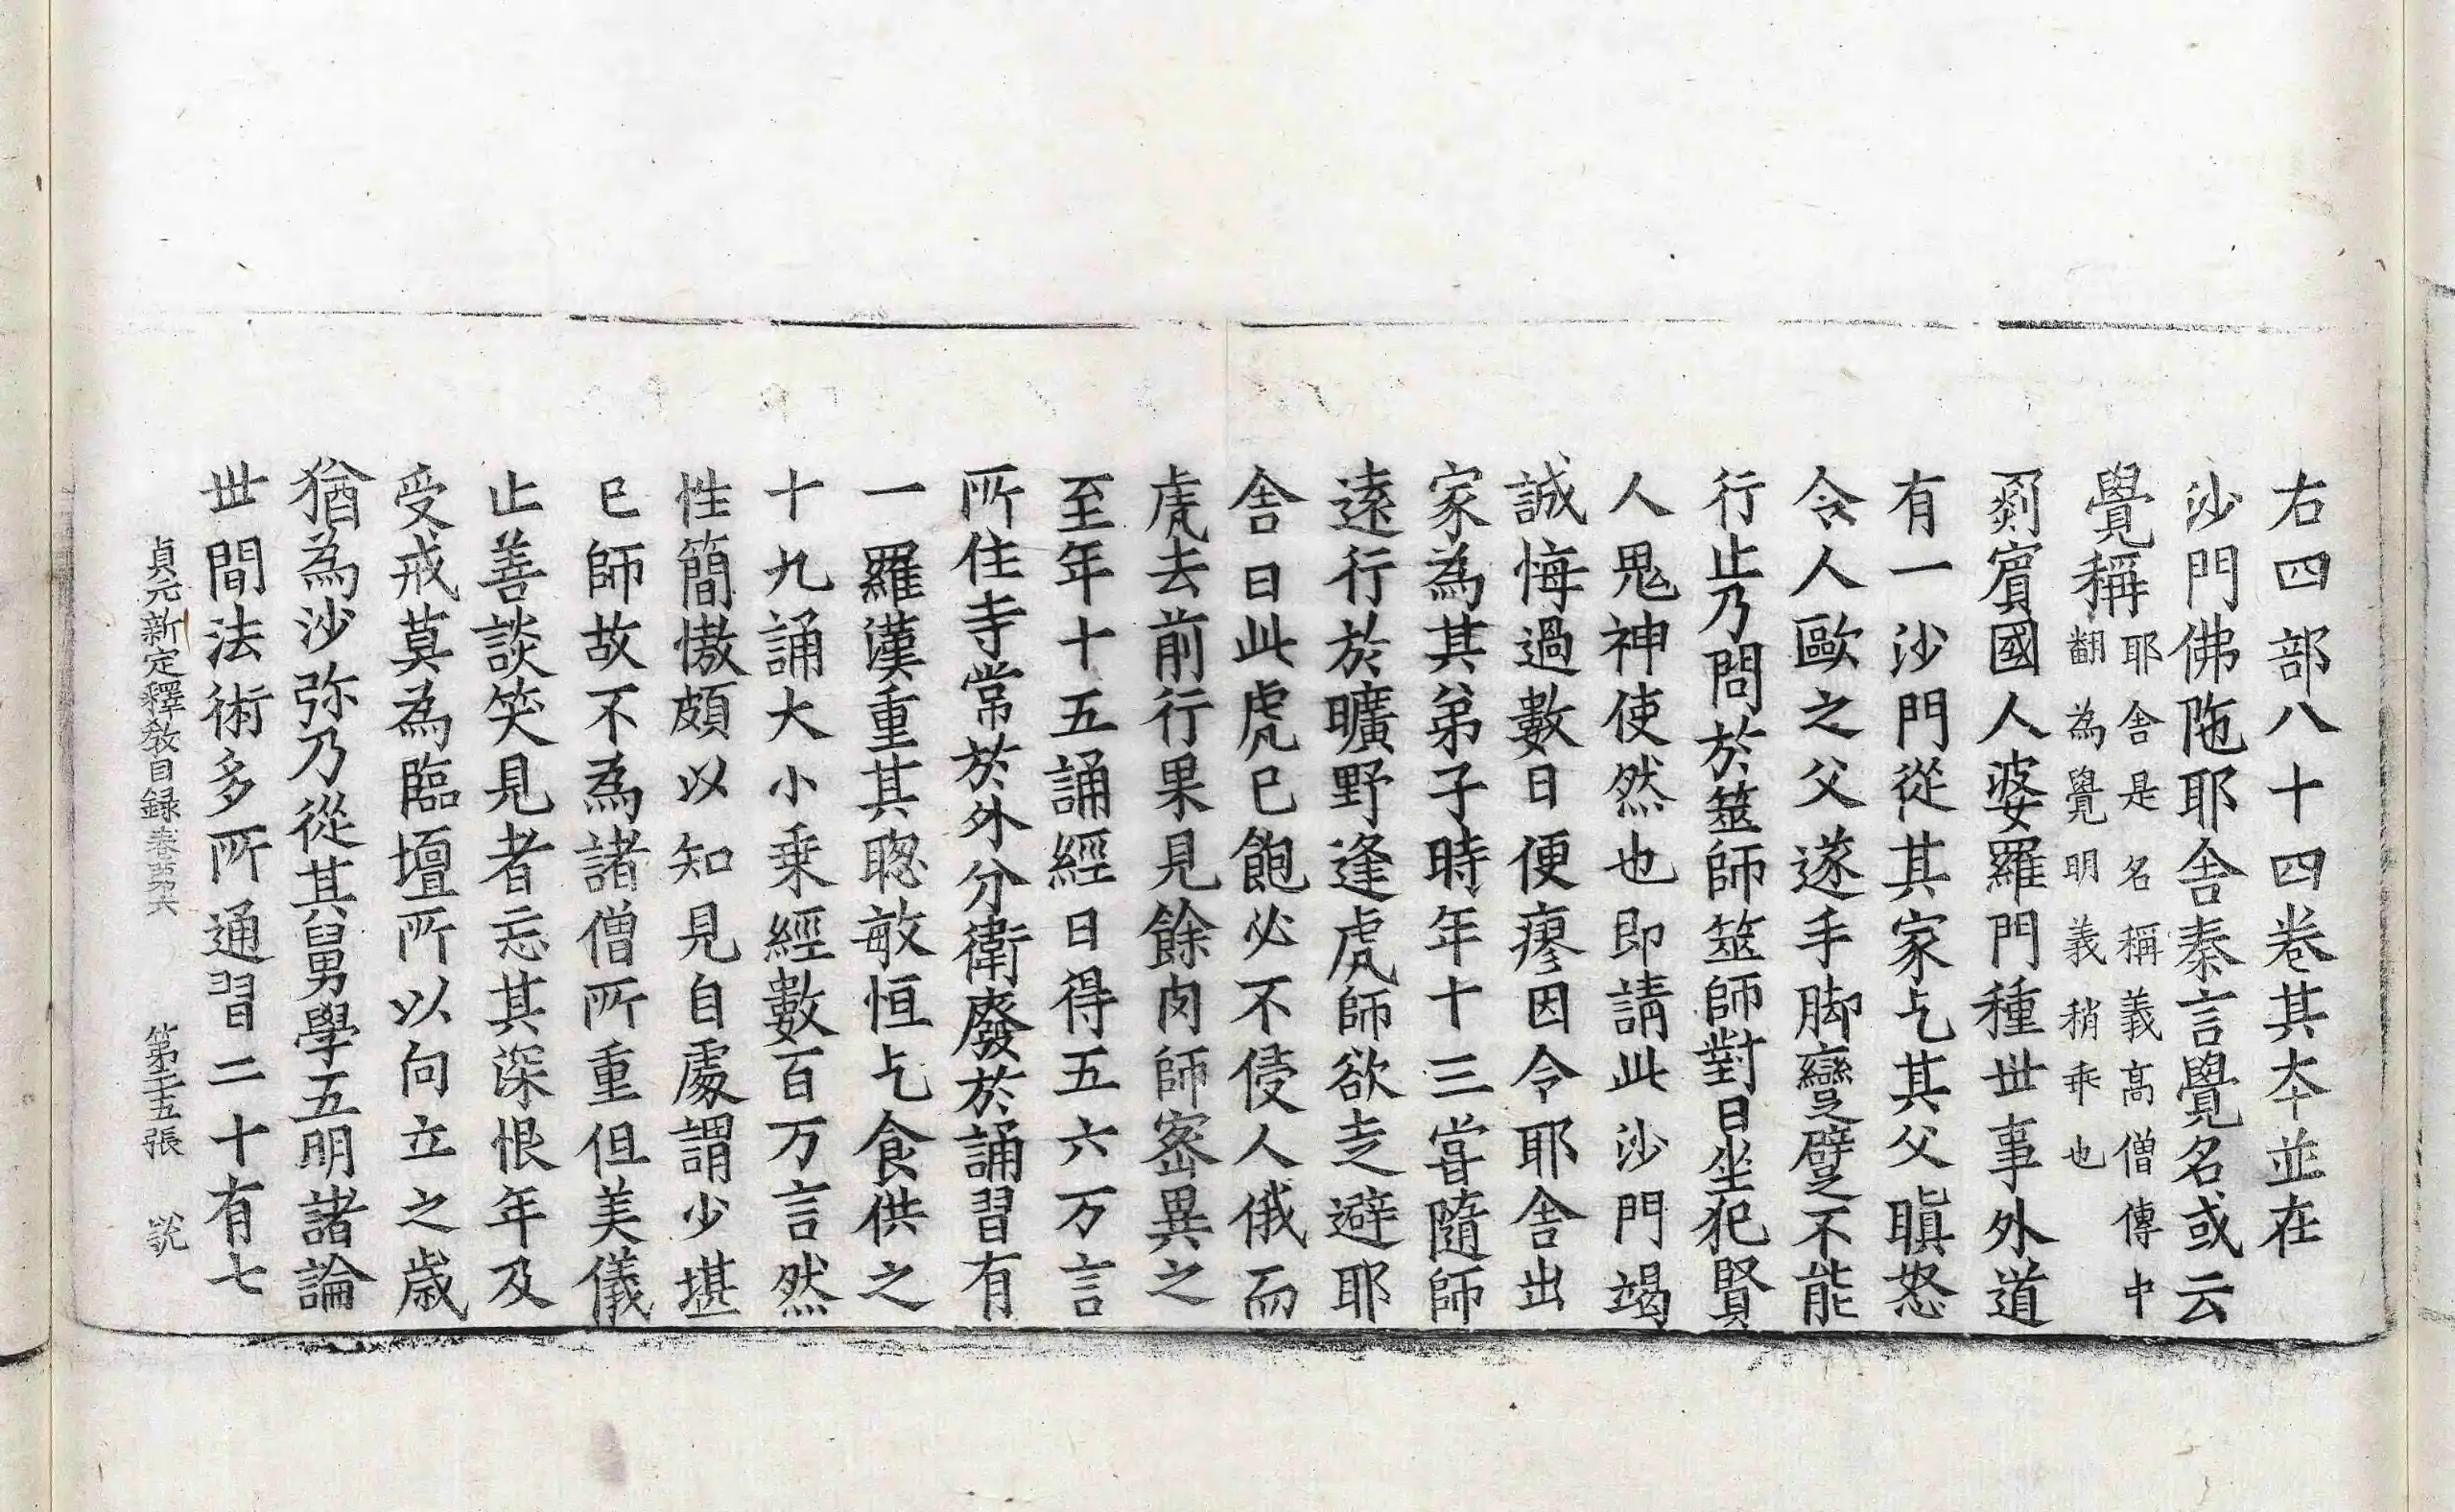 右四部八十四卷其本並在
沙門佛陁耶舍秦言覺名或云
覺稱耶舍是名稱義高僧傳中
翻為覺明義稍乖也
罽賓國人婆羅門種世事外道
有一沙門從其家乞其父瞋怒
令人歐之父遂手脚攣躄不能
行止乃問於筮師筮師對曰坐犯賢
人鬼神使然也即請此沙門竭
誠悔過數日便瘳因令耶舍出
家為其弟子時年十三甞隨師
遠行於曠野逢虎師欲走避耶
舍曰此虎已飽必不侵人俄而
虎去前行果見餘肉師密異之
至年十五誦經日得五六万言
所住寺常於外分衛廢於誦習有
一羅漢重其聦敏恒乞食供之
十九誦大小乗經數百万言然
性簡慠頗以知見自處謂少堪
已師故不為諸僧所重但美儀
止善談笑見者忘其深恨年及
受戒莫為臨壇所以向立之歲
猶為沙弥乃從其舅學五明諸論
世間法術多所通習二十有七
貞元新定釋教目録卷第六 第三十五張